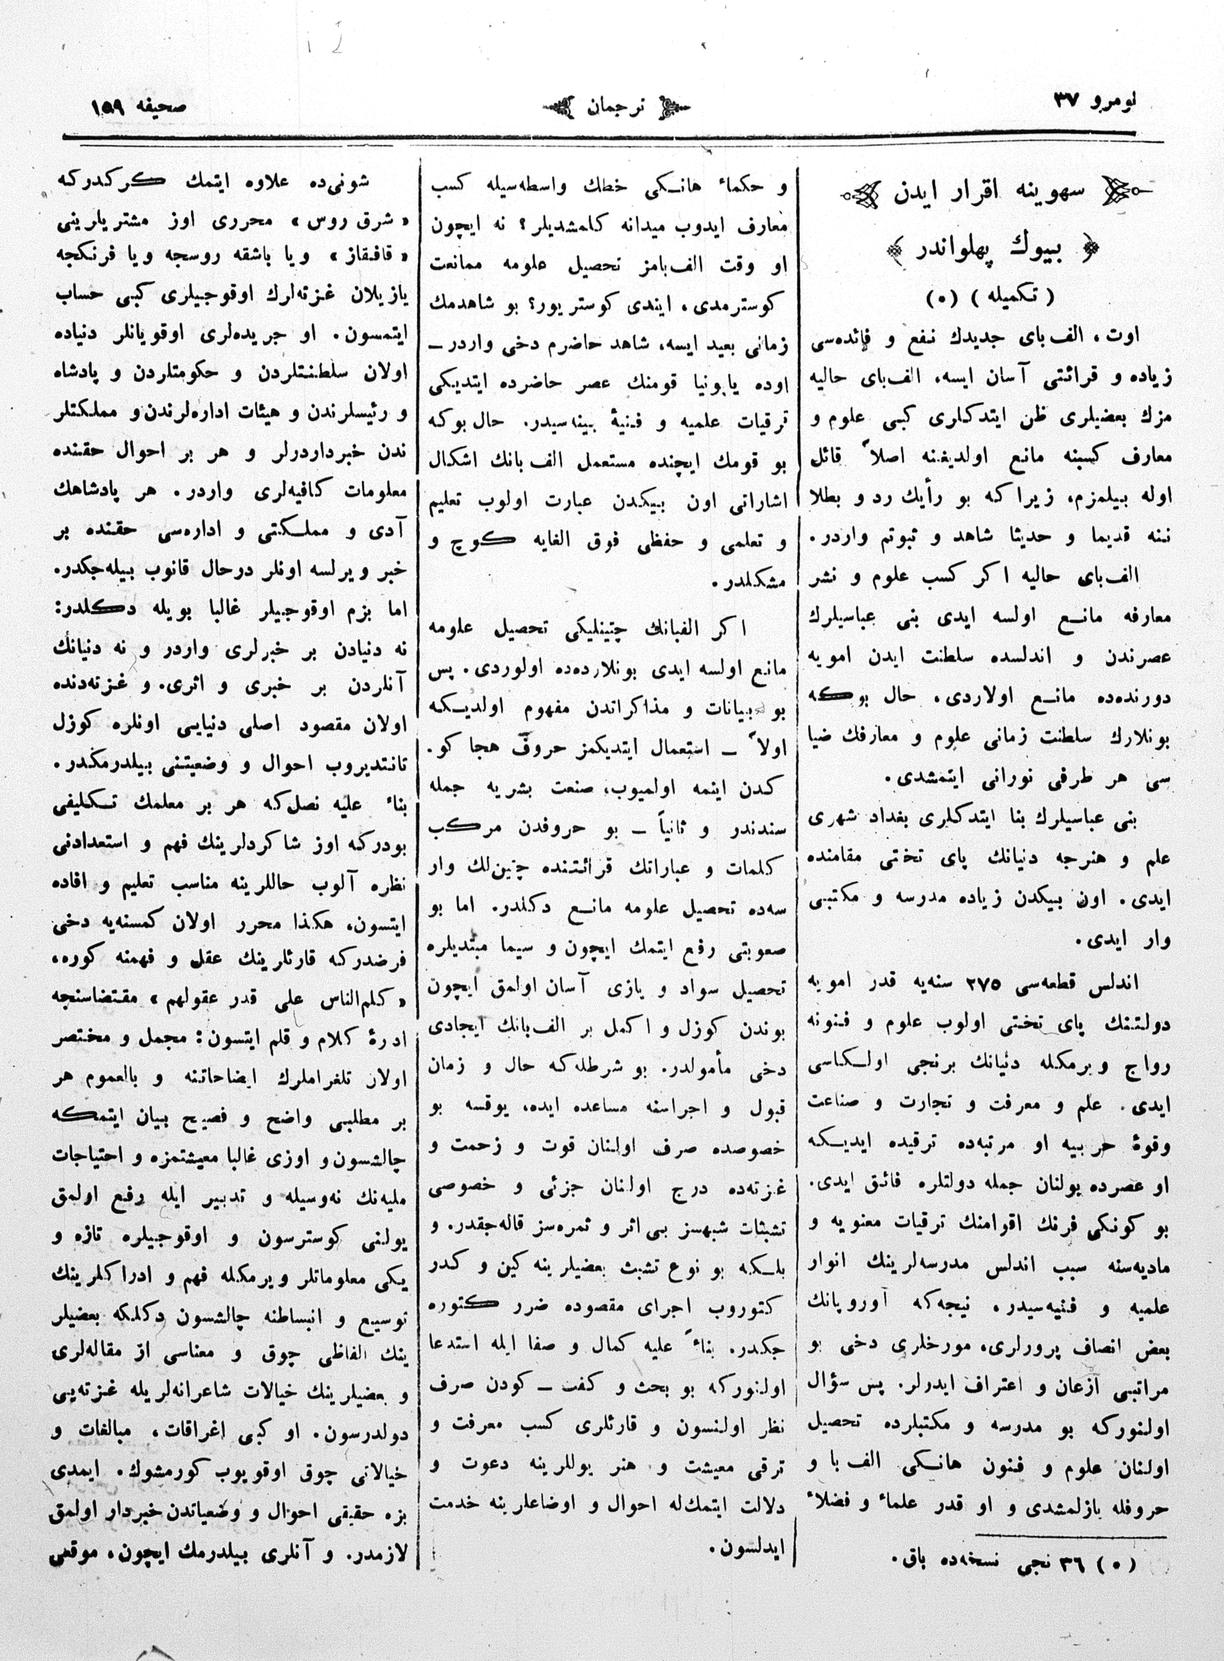 لومرو ٣٧
ترجمان
صحیفه ١٥٩
سهوینه اقرار ایدن
بیوك پهلواندر
( تکمیله ) (٥)
اوت، الف‌بای جدیدك نفع و فائده‌سی
زیاده و قرائتی آسان ایسه، الف‌بای حالیه
مزك بعضیلری ظن ایتدکلری کبی علوم و
معارف کسبنه مانع اولدیغنه اصلاً قائل
اوله بیلمزم، زیرا که بو رأیك رد و بطلا
ننه قدیما و حدیثا شاهد و ثبوتم واردر.
الف‌بای حالیه اکر کسب علوم و نشر
معارفه مانع اولسه ایدی بنی عباسیلرك
عصرندن و اندلسده سلطنت ایدن امویه
دورنده‌ده مانع اولاردی، حال بوکه
بونلارك سلطنت زمانی علوم و معارفك ضیا
سی هر طرفی نورانی ایتمشدی.
بنی عباسیلرك بنا ایتدکلری بغداد شهری
علم و هنرجه دنیانك پای تختی مقامنده
ایدی. اون بیکدن زیاده مدرسه و مکتبی
وار ایدی.
اندلس قطعه‌سی ٢٧٥ سنه‌یه قدر امویه
دولتنك پای تختی اولوب علوم و فنونه
رواج ویرمکله دنیانك برنجی اولکاسی
ایدی. علم و معرفت و تجارت و صناعت
وقوهٔ حربیه او مرتبه‌ده ترقیده ایدیکه
او عصرده بولنان جمله دولتلره فائق ایدی.
بو کونکی فرنك اقوامنك ترقیات معنویه و
مادیه‌سنه سبب اندلس مدرسه‌لرینك انوار
علمیه و فنیه‌سیدر، نیجه‌که آوروپانك
بعض انصاف پرورلری، مورخلری دخی بو
مراتبی اذعان و اعتراف ایدرلر. پس سؤال
اولنورکه بو مدرسه و مکتبلرده تحصیل
اولنان علوم و فنون هانکی الف با و
حروفله یازلمشدی و او قدر علماء و فضلاء
(٥) ٣٦ نجی نسخه‌ده باق.
و حکماء هانکی خطك واسطه‌سیله کسب
معارف ایدوب میدانه کلمشدیلر؟ نه ایچون
او وقت الف‌بامز تحصیل علومه ممانعت
کوسترمدی، ایندی کوستریور؟ بو شاهدمك
زمانی بعید ایسه، شاهد حاضرم دخی واردر—
اوده یاپونیا قومنك عصر حاضرده ایتدیکی
ترقیات علمیه و فنیهٔ بینه‌سیدر. حال بوکه
بو قومك ایچنده مستعمل الف‌بانك اشکال
اشاراتی اون بیکدن عبارت اولوب تعلیم
و تعلمی و حفظی فوق الغایه کوچ و
مشکلدر.
اکر الفبانك چتینلیکی تحصیل علومه
مانع اولسه ایدی بونلارده‌ده اولوردی. پس
بو بیانات و مذاکراتدن مفهوم اولدیکه
اولاً — استعمال ایتدیکمز حروف هجا کو.
کدن ایتمه اولمیوب، صنعت بشریه جمله
سندندر و ثانیاً — بو حروفدن مرکب
کلمات و عباراتك قرائتنده چتین‌لك وار
سه‌ده تحصیل علومه مانع دکلدر. اما بو
صعوبتی رفع ایتمك ایچون و سیما مبتدیلره
تحصیل سواد و یازی آسان اولمق ایچون
بوندن کوزل و اکمل بر الف‌بانك ایجادی
دخی مأمولدر. بو شرطله‌که حال و زمان
قبول و اجراسنه مساعده ایده، یوقسه بو
خصوصده صرف اولنان قوت و زحمت و
غزته‌ده درج اولنان جزئی و خصوصی
تشبثات شبهسز بی اثر و ثمره‌سز قاله‌جقدر. و
بلکه بو نوع تشبث بعضیلرینه کین و کدر
کتوروب اجرای مقصوده ضرر کتوره
جکدر. بناءً علیه کمال و صفا ایله استدعا
اولنورکه بو بحث و کفت — کودن صرف
نظر اولنسون و قارئلری کسب معرفت و
ترقی معیشت و هنر یوللرینه دعوت و
دلالت ایتمك‌له احوال و اوضاعلرینه خدمت
ایدلسون.
شونی‌ده علاوه ایتمك کرکدرکه
«شرق روس» محرری اوز مشتریلرینی
«قافقاز» ویا باشقه روسجه ویا فرنکجه
یازیلان غزته‌لرك اوقوجیلری کبی حساب
ایتمسون. او جریده‌لری اوقویانلر دنیاده
اولان سلطنتلردن و حکومتلردن و پادشاه
و رئیسلرندن و هیئات اداره‌لرندن و مملکتلر
ندن خبرداردرلر و هر بر احوال حقنده
معلومات کافیه‌لری واردر. هر پادشاهك
آدی و مملکتی و اداره‌سی حقنده بر
خبر ویرلسه اونلر درحال قانوب بیله‌جکدر.
اما بزم اوقوجیلر غالبا بویله دکلدر:
نه دنیادن بر خبرلری واردر و نه دنیانك
آنلردن بر خبری و اثری. و غزته‌دنده
اولان مقصود اصلی دنیایی اونلره کوزل
تانتدیروب احوال و وضعیتنی بیلدرمکدر.
بناء علیه نصل‌که هر بر معلمك تکلیفی
بودرکه اوز شاکردلرینك فهم و استعدادنی
نظره آلوب حاللرینه مناسب تعلیم و افاده
ایتسون، هکذا محرر اولان کمسنه‌یه دخی
فرضدرکه قارئلرینك عقل و فهمنه کوره،
«کلم الناس علی قدر عقولهم» مقتضاسنجه
ادارهٔ کلام و قلم ایتسون: مجمل و مختصر
اولان تلغراملرك ایضاحاتنه و بالعموم هر
بر مطلبی واضح و فصیح بیان ایتمکه
چالشسون و اوزی غالبا معیشتمزه و احتیاجات
ملیه‌نك نه‌وسیله و تدبیر ایله رفع اولمق
یولنی کوسترسون و اوقوجیلره تازه و
یکی معلوماتلر ویرمکله فهم و ادراکلرینك
توسیع و انبساطنه چالشسون دکلکه بعضیلر
ینك الفاظی چوق و معناسی از مقاله‌لری
و بعضیلرینك خیالات شاعرانه‌لریله غزته‌یی
دولدرسون. او کبی اغراقات، مبالغات و
خیالاتی چوق اوقویوب کورمشوك. ایمدی
بزه حقیقی احوال و وضعیاتدن خبردار اولمق
لازمدر. و آنلری بیلدرمك ایچون، موقص